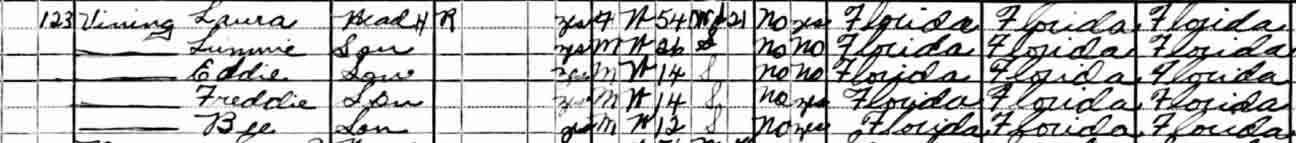 123 Vining Laura Head H R yes F W 54 Wd 21 No yes Florida Florida Florida
Limmie Son yes M W 26 S No No Florida Florida Florida
Eddie Son yes M W 14 S No No Florida Florida Florida
Freddie Son yes M W 14 S No yes Florida Florida Florida
Bee Son yes M W 12 S No yes Florida Florida Florida